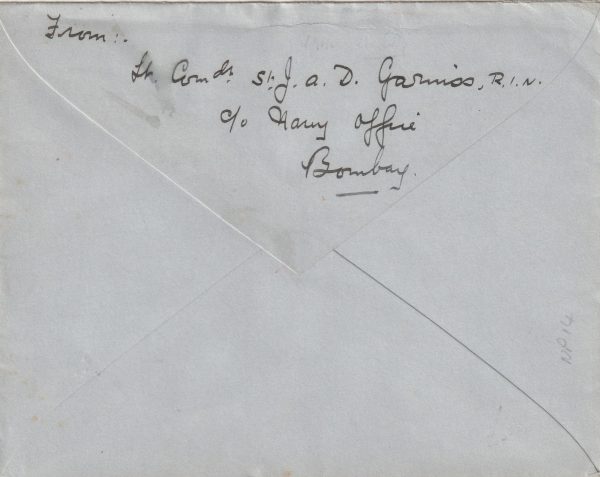 From:-
Lt. Comdr St. J. A. D. Garniss, R.I.N.
c/o Navy Office
Bombay.